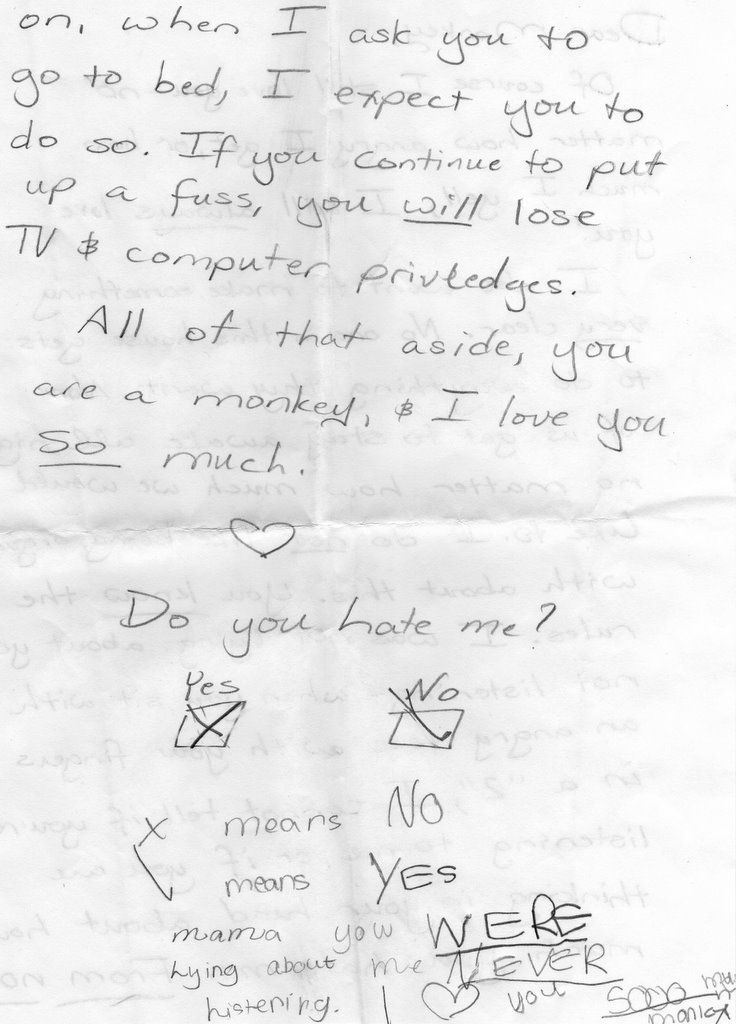 on, when I ask you to
go to bed, I expect you to
do so. If you continue to put
up a fuss, you will lose
TV & computer priviledges.
All of that aside, you
are a monkey, & I love you
so much.
Do you hate me?
Yes No
x means NO
means YES
mama yow WERE
lying about me NEVER
listening. I you sooo